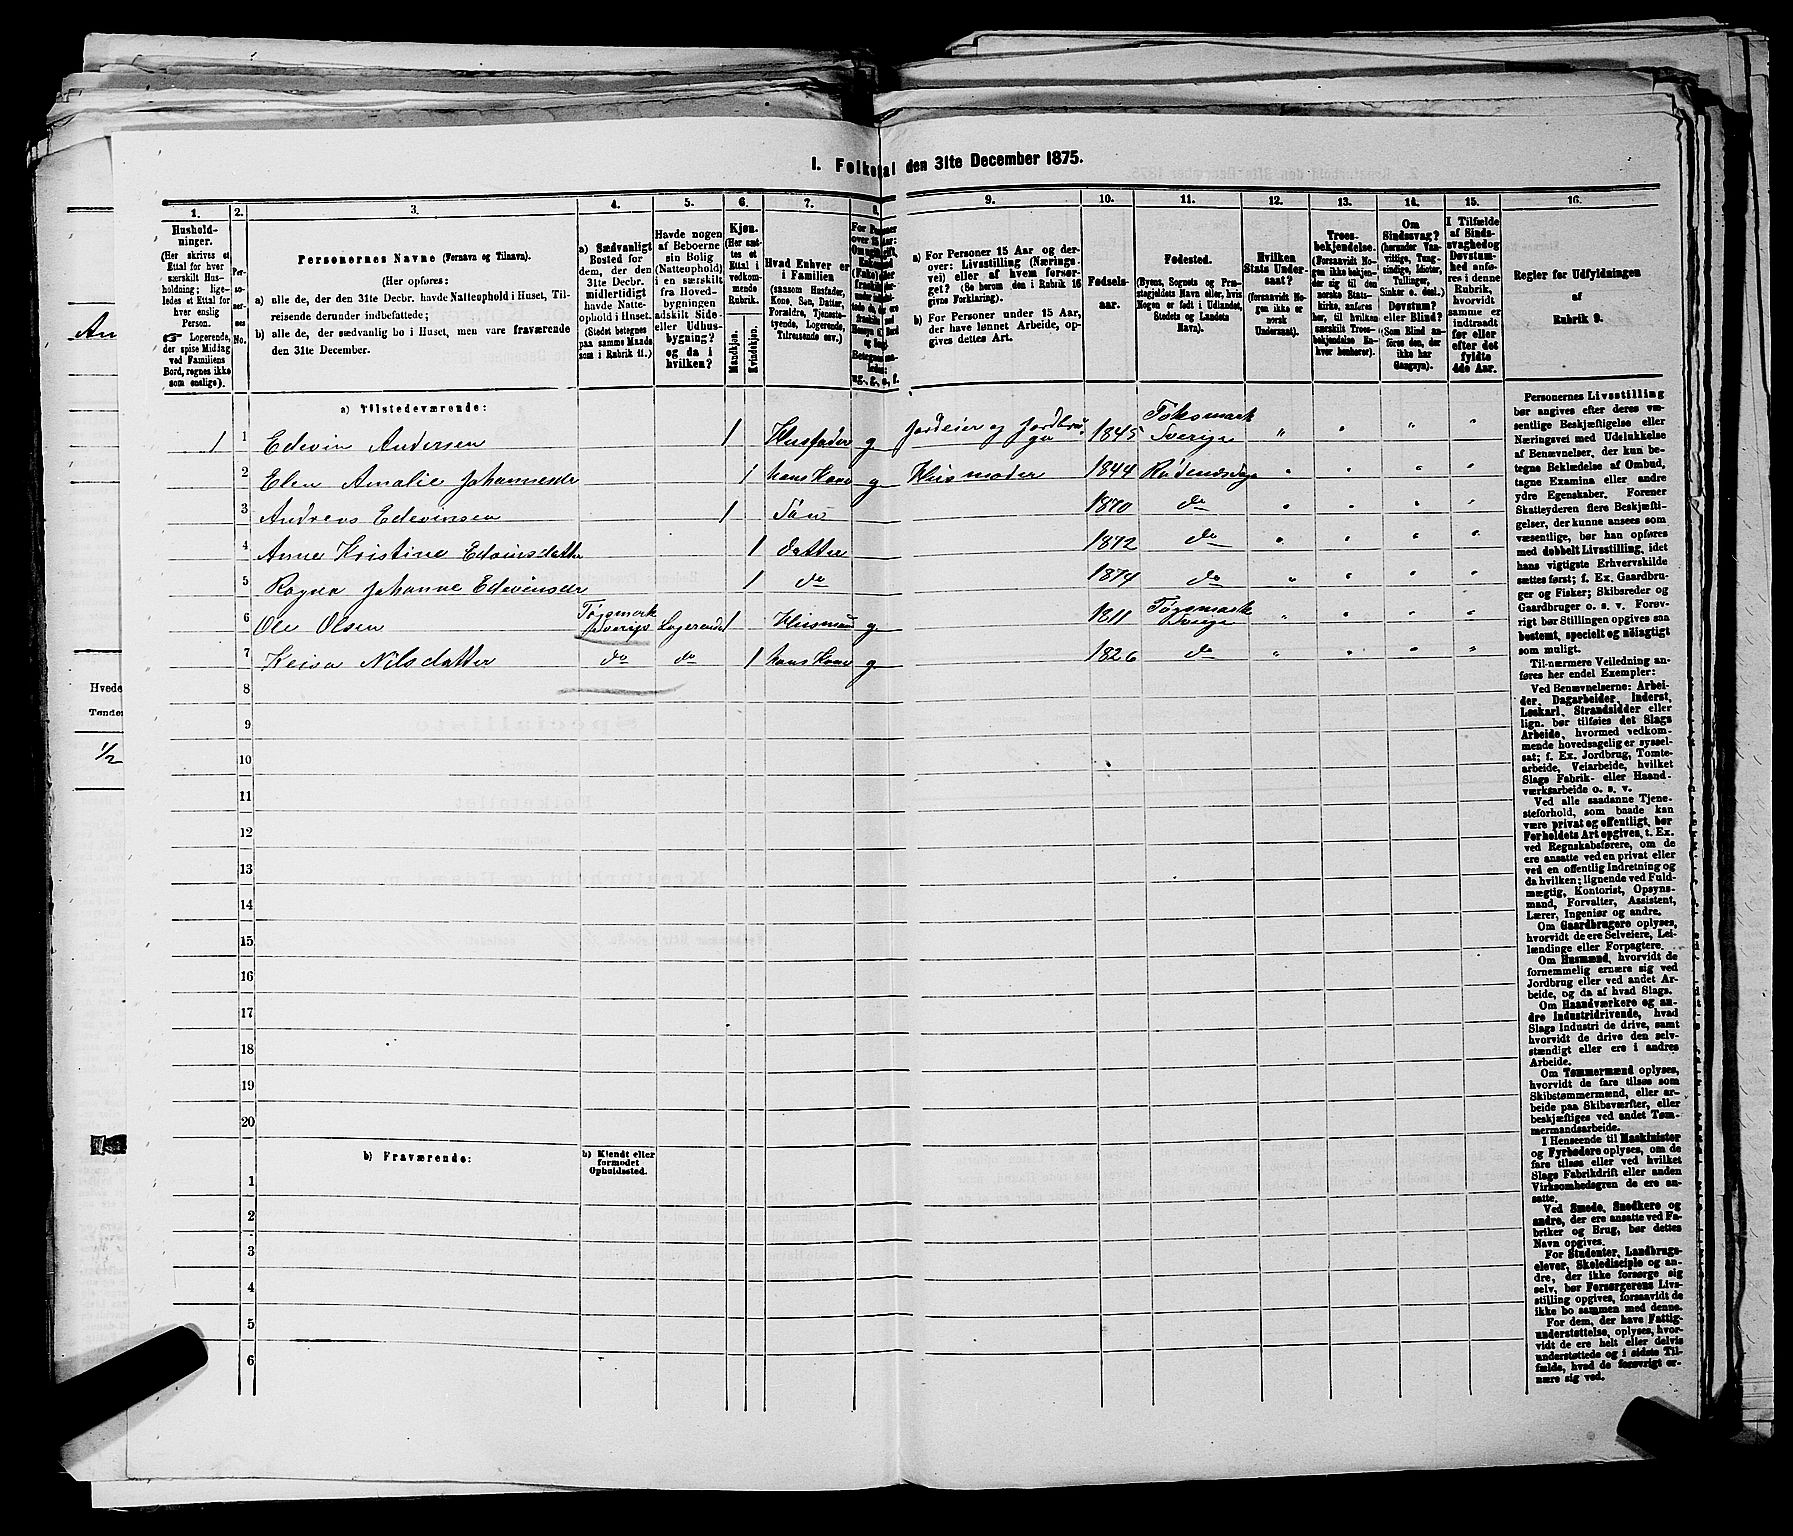 I. Folketal den 31te December 1875.
1. 2. 3. 4. 5. 6. 7. 8. 9. 10. 11. 12. 13. 14. 15. 16.
Hushold-
ninger.
(Her skrives et
Ettal for hver
særskilt Hus-
holdning; lige-
ledes et Ettal for
hver enslig
Person.
☞ Logerende,
der spise Middag
ved Familiens
Bord, regnes ikke
som enslige).
Per-
so-
ner-
nes
No.
Personernes Navne (Fornavn og Tilnavn).
(Her opføres:
a) alle de, der den 31te Decbr. havde Natteophold i Huset, Til-
reisende derunder indbefattede;
b) alle de, der sædvanlig bo i Huset, men vare fraværende
den 31te December.
a) Sædvanligt
Bosted for
dem, der den
31te Decbr.
midlertidigt
havde Natte-
ophold i Huset.
(Stedet betegnes
paa samme Maade
som i Rubrik 11.)
Havde nogen
af Beboerne
sin Bolig
(Natteophold)
i en særskilt
fra Hoved-
bygningen
adskilt Side-
eller Udhus-
bygning?
og da i
hvilken?
Kjøn.
(Her sæt-
tes et
Ettal i
vedkom-
mende
Rubrik.
Mandkjøn.
Kvindekjøn.
Hvad Enhver er
i Familien
(saasom Husfader,
Kone, Søn, Datter,
Forældre, Tjeneste-
tyende, Logerende,
Tilreisende osv.)
a) For Personer 15 Aar og der-
over: Livsstilling (Nærings-
vei) eller af hvem forsør-
get? (Se herom den i Rubrik 16
givne Forklaring).
b) For Personer under 15 Aar,
der have lønnet Arbeide, op-
gives dettes Art.
Fødsels-
aar.
Fødested.
(Byens, Sognets og Præ-
stegjeldets Navn eller, hvis
Nogen er født i Udlandet,
Stedets og Landets
Navn).
Hvilken
Stats Under-
saat?
(forsaavidt No-
gen ikke er
norsk
Undersaat).
Troes-
bekjendelse.
(Forsaavidt No-
gen ikke bekjen-
der sig til den
norske Stats-
kirke, anføres
her, til hvilken
særskilt Troes-
bekjendelse En-
hver henhører).
Om
Sindssvag?
(herunder Van-
vittige, Tung-
sindige, Idioter,
Tullinger,
Sinker o. desl.)
Døvstum?
eller Blind?
(Som Blind an-
føres den, der
ikke har
Gangsyn).
I Tilfælde
af Sinds-
svaghed og
Døvstum-
hed anfø-
res i denne
Rubrik,
hvorvidt
samme er
indtraadt
før eller
efter det
fyldte
4de Aar.
Regler for Udfyldningen
af
Rubrik 9.
a) Tilstedeværende:
1 1 Edevin Andersen 1 Husfader g Jordeier og Jordbru- 1845 Tøksmark Sverige " " " "
2 Elen Amalie Johannesdr 1 hans Kone g Husmoder 1844 Rødenæs " " " "
3 Andreas Edevinsen 1 Søn 1870 do " " " "
4 Anne Kristine Edvinsdatter 1 datter 1872 do " " " "
5 Ragna Johanne Edevinsdr 1 do 1874 do " " " "
6 Ole Olsen Tøgsmark Sverige Logerende 1 Husmand g 1811 Tøgsmark Sverige " " " "
7 Keisa Nilsdatter do do 1 hans Kone g 1826 do " " " "
8
9
10
11
12
13
14
15
16
17
18
19
20
b) Fraværende:
b) Kjendt eller
formodet
Opholdssted.
1
2
3
4
5
6
Personernes Livsstilling
bør angives efter deres væ-
sentlige Beskjæftigelse eller
Næringsvei med Udelukkelse
af Benævnelser, der kun be-
tegne Beklædelse af Ombud,
tagne Examina eller andre
ydre Egenskaber. Forener
Skatteyderen flere Beskjæfti-
gelser, der kunne ansees som
væsentlige, bør han opføres
med dobbelt Livsstilling, idet
hans vigtigste Erhvervskilde
sættes først; f. Ex. Gaardbru-
ger og Fisker; Skibsreder og
Gaardbruger o. s. v. Forøv-
rigt bør Stillingen opgives saa
bestemt, specielt og nøiagtigt
som muligt.
Til nærmere Veiledning an-
føres her endel Exempler:
Ved Benævnelserne: Arbei-
der, Dagarbeider, Inderst,
Løskarl, Strandsidder eller
lign. bør tilføies det Slags
Arbeide, hvormed vedkom-
mende hovedsagelig er syssel-
sat; f. Ex. Jordbrug, Tomte-
arbeide, Veiarbeide, hvilket
Slags Fabrik- eller Haand-
værksarbeide o. s. v.
Ved alle saadanne Tjene-
steforhold, som baade kan
være privat og offentligt, bør
Forholdets Art opgives, t. Ex.
ved Regnskabsførere, om de
ere ansatte ved en privat eller
ved en offentlig Indretning og
da hvilken; lignende ved Fuld-
mægtig, Kontorist, Opsyns-
mand, Forvalter, Assistent,
Lærer, Ingeniør og andre.
Om Gaardbrugere oplyses,
hvorvidt de ere Selveiere, Lei-
lændinge eller Forpagtere.
Om Husmænd, hvorvidt de
fornemmelig ernære sig ved
Jordbrug eller ved andet Ar-
beide, og da af hvad Slags.
Om Haandværkere og an-
dre Industridrivende, hvad
Slags Industri de drive, samt
hvorvidt de drive den selv-
stændigt eller ere i andres
Arbeide.
Om Tømmermænd oplyses,
hvorvidt de fare tilsøs som
Skibstømmermænd, eller ar-
beide paa Skibsværfter, eller
beskjæftiges ved andet Tøm-
mermandsarbeide.
I Henseende til Maskinister
og Fyrbødere oplyses, om de
fare tilsøs eller ved hvilket
Slags Fabrikdrift eller anden
Virksomhedsgren de ere an-
satte.
Ved Smede, Snedkere og
andre, der ere ansatte ved Fa-
briker og Brug, bør dettes
Navn opgives.
For Studenter, Landbrugs-
elever, Skoledisciple og an-
dre, der ikke forsørge sig
selv, bør Forsørgerens Livs-
stilling opgives, forsaavidt de
ikke bo sammen med denne.
For dem, der have Fattig-
understøttelse, oplyses, hvor-
vidt de ere helt eller delvis
understøttede og i sidste Til-
fælde, hvad de forøvrigt er-
nære sig ved.
An
Hvede
Tønder
1/2